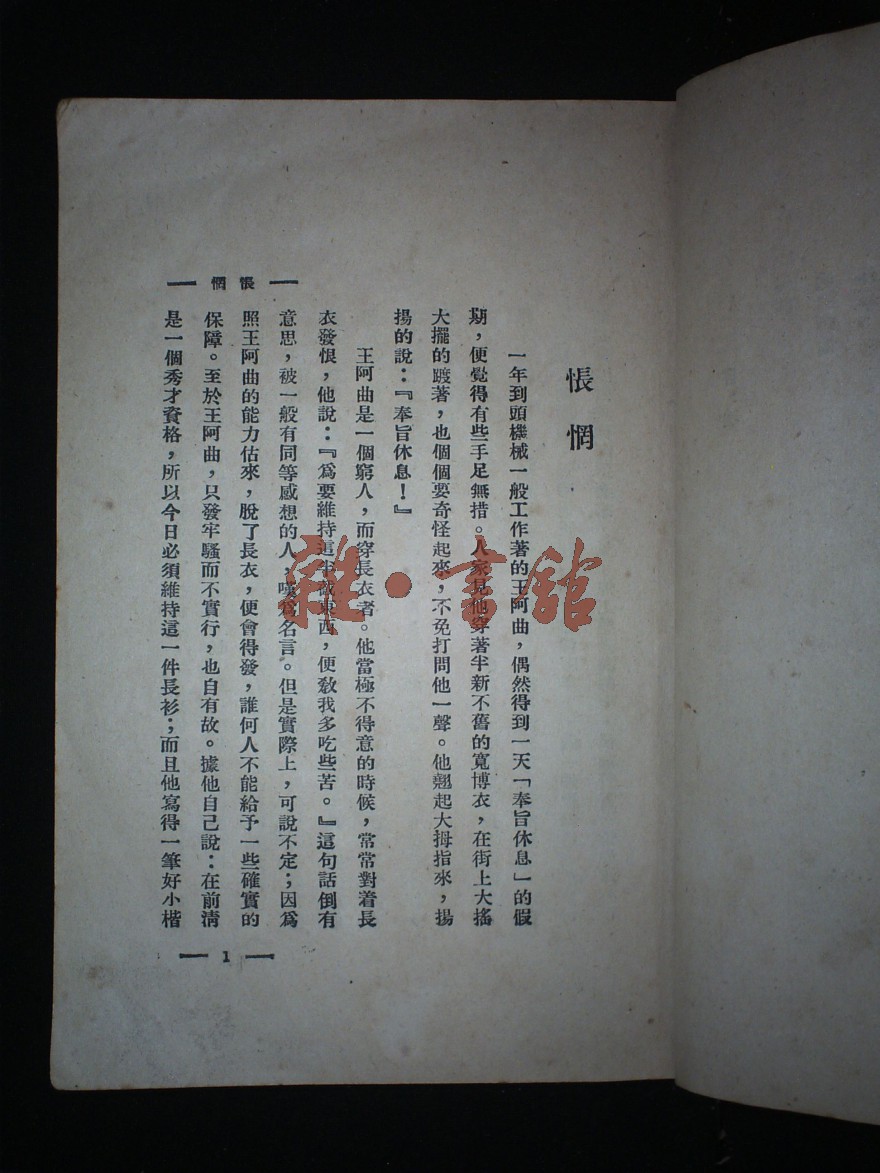 悵惘
一年到頭機械一般工作著的王阿曲，偶然得到一天「奉旨休息」的假
期，便覺得有些手足無措。人家見他穿著半新不舊的寬博衣，在街上大搖
大擺的踱著，也個個要奇怪起來，不免打問他一聲。他翹起大拇指來，揚
揚的說：『奉旨休息！』
王阿曲是一個窮人，而穿長衣者。他當極不得意的時候，常常對着長
衣發恨，他說：『爲要維持這半截東西，便教我多吃些苦。』這句話倒有
意思，被一般有同等感想的人，嘆爲名言。但是實際上，可說不定；因爲
照王阿曲的能力估來，脫了長衣，便會得發，誰何人不能給予一些確實的
保障。至於王阿曲，只發牢騷而不實行，也自有故。據他自己說：在前淸
是一個秀才資格，所以今日必須維持這一件長衫；而且他寫得一筆好小楷
悵惘
1
雜·書館